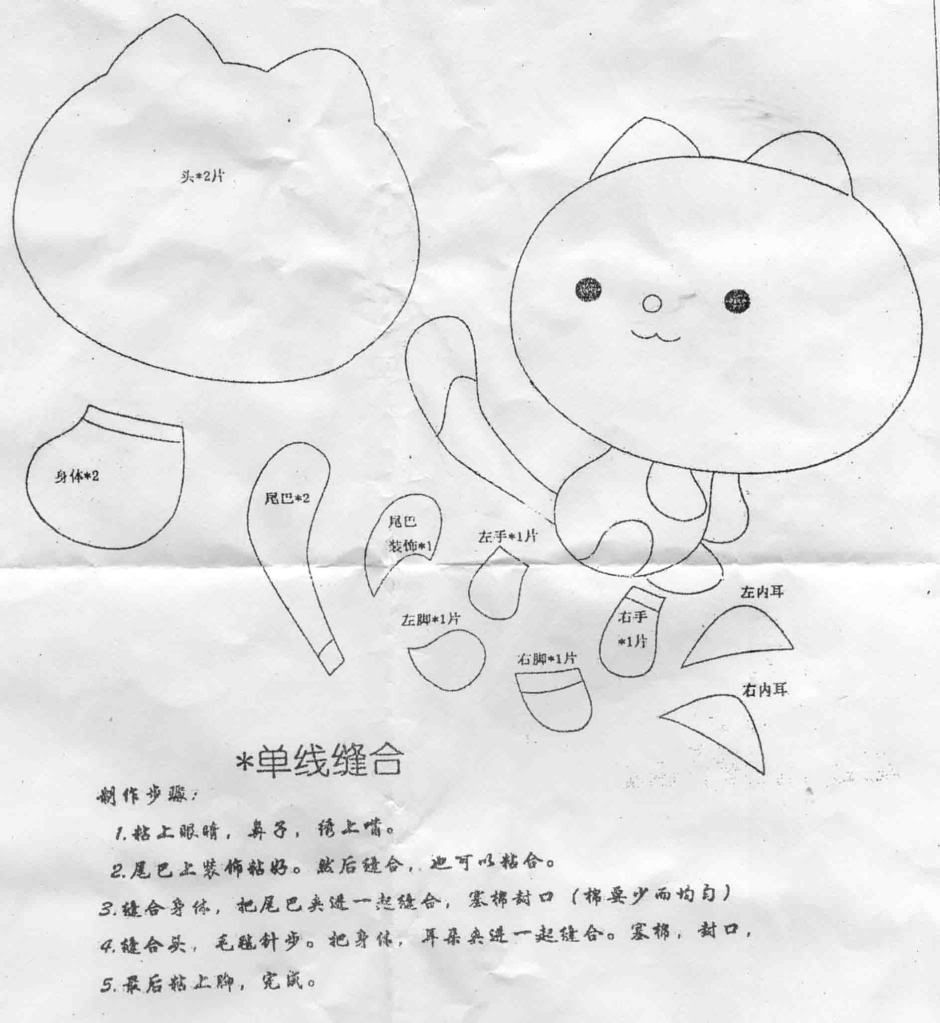 头*2片
身体*2
尾巴*2
尾巴
装饰*1
左手*1片
左脚*1片
右脚*1片
右手
*1片
左内耳
右内耳
*单线缝合
制作步骤：
1.粘上眼睛，鼻子，绣上嘴。
2.尾巴上装饰粘好。然后缝合，也可以粘合。
3.缝合身体，把尾巴夹进一起缝合，塞棉封口（棉要少而均匀）
4.缝合头，毛毯针步。把身体，耳朵夹进一起缝合。塞棉，封口，
5.最后粘上脚，完成。